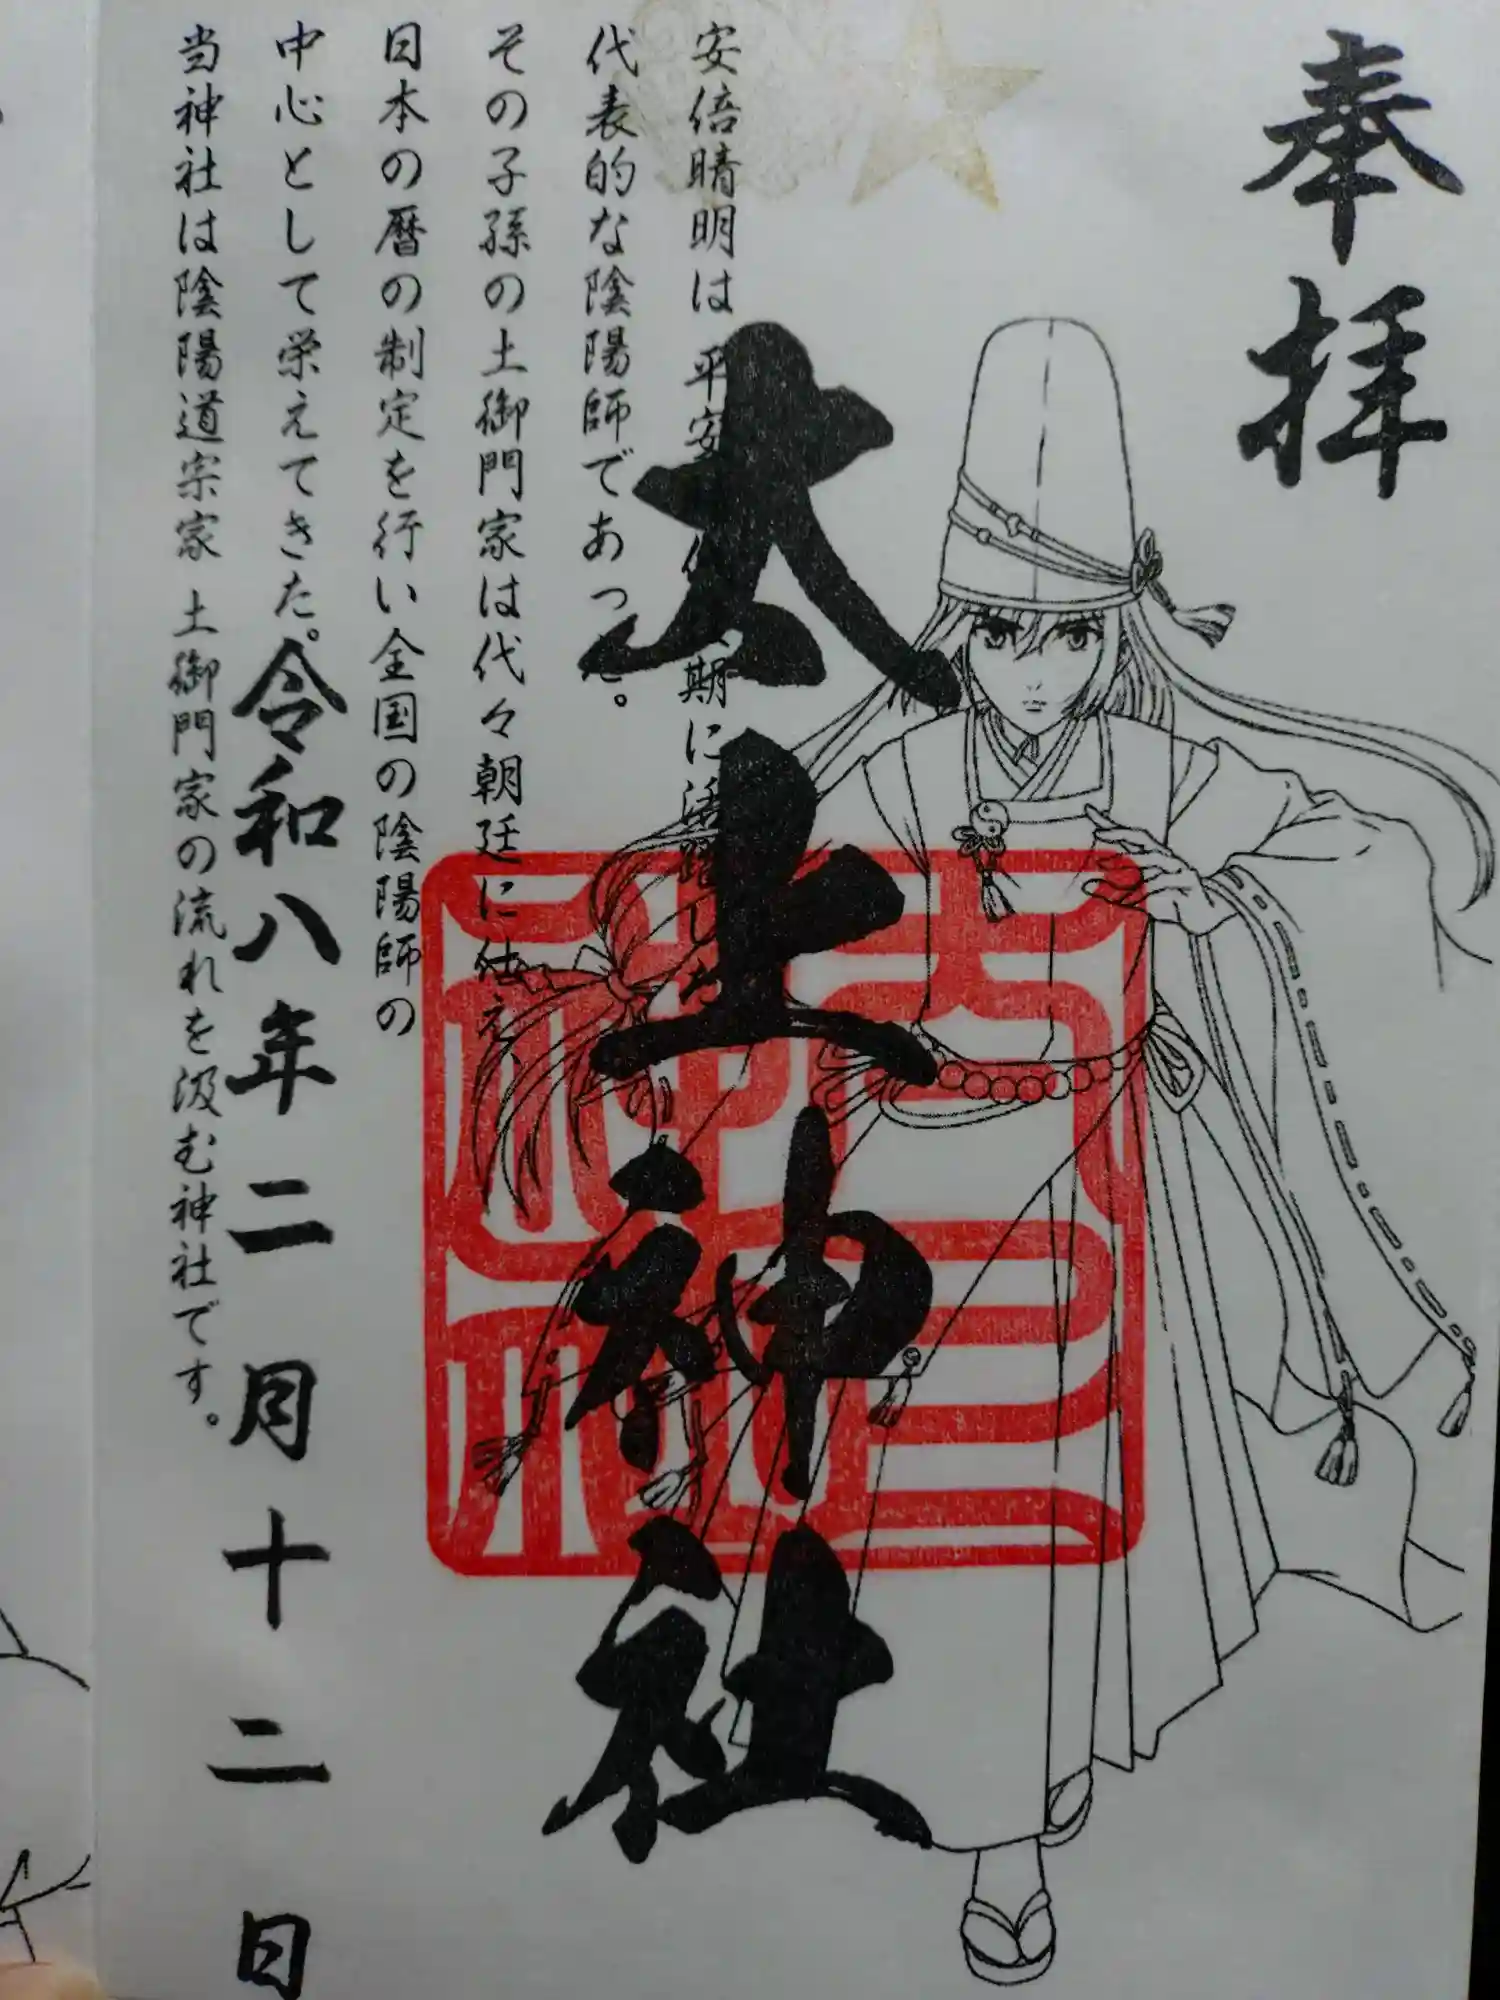 奉拝
安倍晴明は 平安 期に活躍した
代表的な陰陽師であった。
その子孫の土御門家は代々朝廷に仕え、
日本の暦の制定を行い全国の陰陽師の
中心として栄えてきた。
当神社は陰陽道宗家 土御門家の流れを汲む神社です。
太上神社
令和八年二月十二日